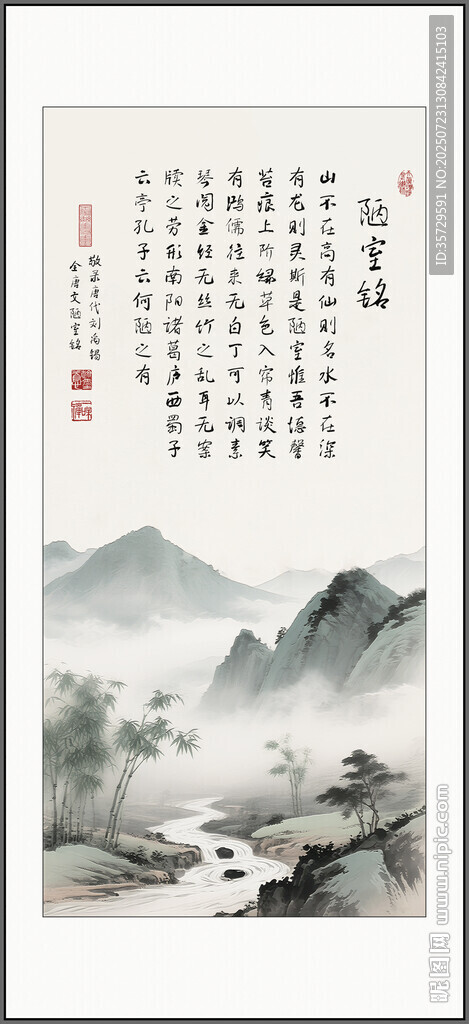 陋室铭
山不在高有仙则名水不在深
有龙则灵斯是陋室惟吾德馨
苔痕上阶绿草色入帘青谈笑
有鸿儒往来无白丁可以调素
琴阅金经无丝竹之乱耳无案
牍之劳形南阳诸葛庐西蜀子
云亭孔子云何陋之有
敬录唐代刘禹锡
全唐文陋室铭
ID:35729591 NO:20250723130842415103
昵图网 www.nipic.com